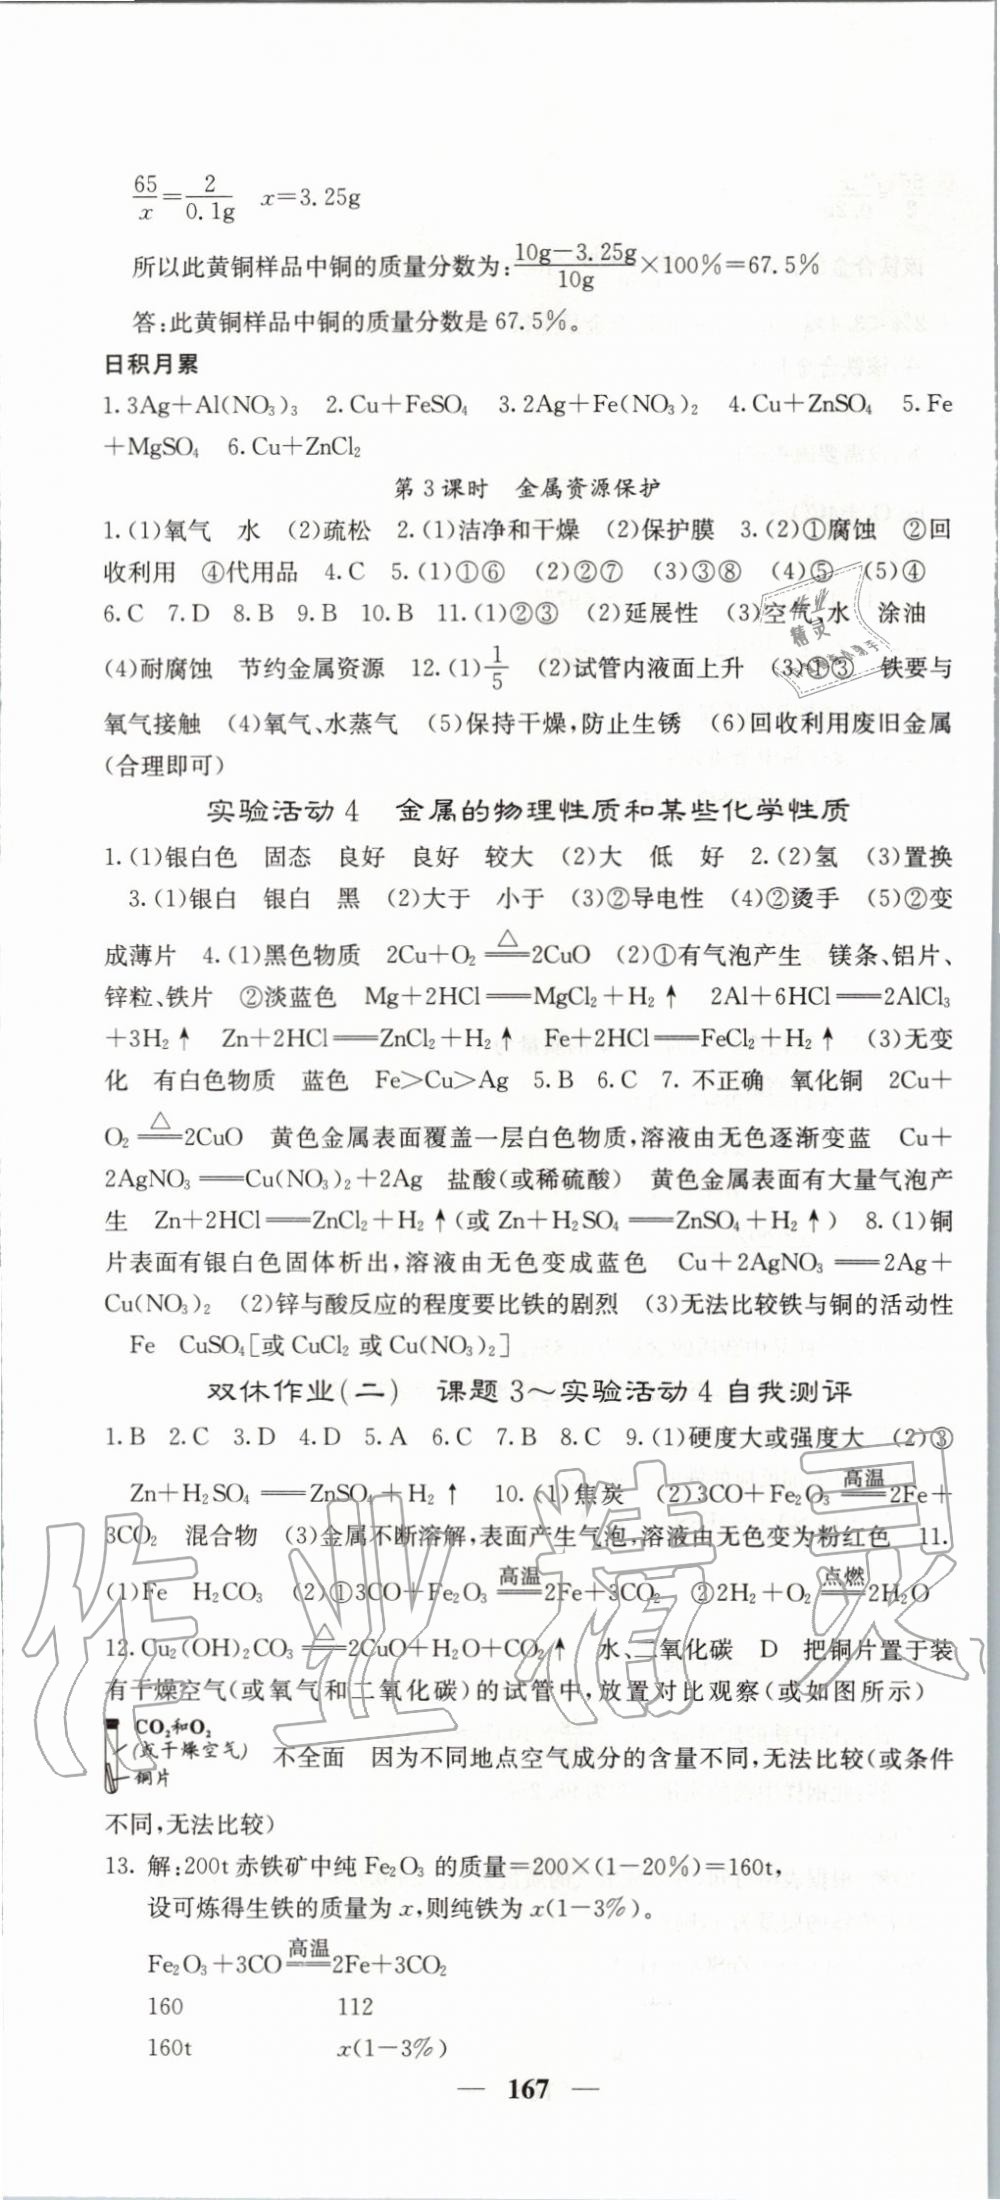 65/x=2/0.1g x=3.25g
所以此黄铜样品中铜的质量分数为:(10g-3.25g)/10g×100%=67.5%
答:此黄铜样品中铜的质量分数是67.5%。
日积月累
1.3Ag+Al(NO₃)₃ 2.Cu+FeSO₄ 3.2Ag+Fe(NO₃)₂ 4.Cu+ZnSO₄ 5.Fe
+MgSO₄ 6.Cu+ZnCl₂
第3课时 金属资源保护
1.(1)氧气 水 (2)疏松 2.(1)洁净和干燥 (2)保护膜 3.(2)①腐蚀 ②回
收利用 ④代用品 4.C 5.(1)①⑥ (2)②⑦ (3)③⑧ (4)⑤ (5)④
6.C 7.D 8.B 9.B 10.B 11.(1)②③ (2)延展性 (3)空气,水 涂油
(4)耐腐蚀 节约金属资源 12.(1)1/5 (2)试管内液面上升 (3)①③ 铁要与
氧气接触 (4)氧气、水蒸气 (5)保持干燥,防止生锈 (6)回收利用废旧金属
(合理即可)
实验活动4 金属的物理性质和某些化学性质
1.(1)银白色 固态 良好 良好 较大 (2)大 低 好 2.(2)氢 (3)置换
3.(1)银白 银白 黑 (2)大于 小于 (3)②导电性 (4)②烫手 (5)②变
成薄片 4.(1)黑色物质 2Cu+O₂ =△= 2CuO (2)①有气泡产生 镁条、铝片、
锌粒、铁片 ②淡蓝色 Mg+2HCl══MgCl₂+H₂↑ 2Al+6HCl══2AlCl₃
+3H₂↑ Zn+2HCl══ZnCl₂+H₂↑ Fe+2HCl══FeCl₂+H₂↑ (3)无变
化 有白色物质 蓝色 Fe>Cu>Ag 5.B 6.C 7. 不正确 氧化铜 2Cu+
O₂ =△= 2CuO 黄色金属表面覆盖一层白色物质,溶液由无色逐渐变蓝 Cu+
2AgNO₃══Cu(NO₃)₂+2Ag 盐酸(或稀硫酸) 黄色金属表面有大量气泡产
生 Zn+2HCl══ZnCl₂+H₂↑(或Zn+H₂SO₄══ZnSO₄+H₂↑) 8.(1)铜
片表面有银白色固体析出,溶液由无色变成蓝色 Cu+2AgNO₃══2Ag+
Cu(NO₃)₂ (2)锌与酸反应的程度要比铁的剧烈 (3)无法比较铁与铜的活动性
Fe CuSO₄[或CuCl₂或Cu(NO₃)₂]
双休作业(二) 课题3～实验活动4自我测评
1.B 2.C 3.D 4.D 5.A 6.C 7.B 8.C 9.(1)硬度大或强度大 (2)③
Zn+H₂SO₄══ZnSO₄+H₂↑ 10.(1)焦炭 (2)3CO+Fe₂O₃ =高温= 2Fe+
3CO₂ 混合物 (3)金属不断溶解,表面产生气泡,溶液由无色变为粉红色 11.
(1)Fe H₂CO₃ (2)①3CO+Fe₂O₃ =高温= 2Fe+3CO₂ ②2H₂+O₂ =点燃= 2H₂O
12.Cu₂(OH)₂CO₃ =△= 2CuO+H₂O+CO₂↑ 水、二氧化碳 D 把铜片置于装
有干燥空气(或氧气和二氧化碳)的试管中,放置对比观察(或如图所示)
CO₂和O₂
(或干燥空气)
铜片
不全面 因为不同地点空气成分的含量不同,无法比较(或条件
不同,无法比较)
13. 解:200t赤铁矿中纯Fe₂O₃的质量=200×(1-20%)=160t,
设可炼得生铁的质量为x,则纯铁为x(1-3%)。
Fe₂O₃+3CO =高温= 2Fe+3CO₂
160 112
160t x(1-3%)
— 167 —
作业精灵